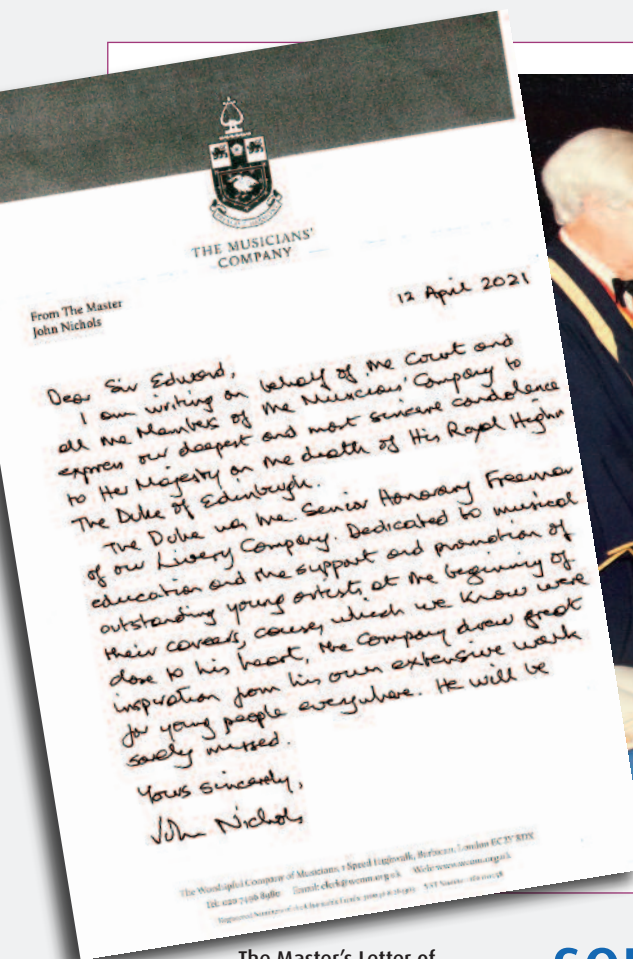 THE MUSICIANS'
COMPANY
From The Master
John Nichols
12 April 2021
Dear Sir Edward,
I am writing on behalf of the Court and
all the Members of the Musicians' Company to
express our deepest and most sincere condolence
to Her Majesty on the death of His Royal Highn
The Duke of Edinburgh.
The Duke was the Senior Honorary Freeman
of our Livery Company. Dedicated to musical
education and the support and promotion of
outstanding young artists at the beginning of
their careers, causes which we know were
close to his heart, the Company drew great
inspiration from his own extensive work
for young people everywhere. He will be
sorely missed.
Yours sincerely,
John Nichols
The Worshipful Company of Musicians, 1 Speed Highwalk, Barbican, London EC2Y 8DX
Tel: 020 7496 8980 Email: clerk@wcom.org.uk Web: www.wcom.org.uk
The Master's Letter of